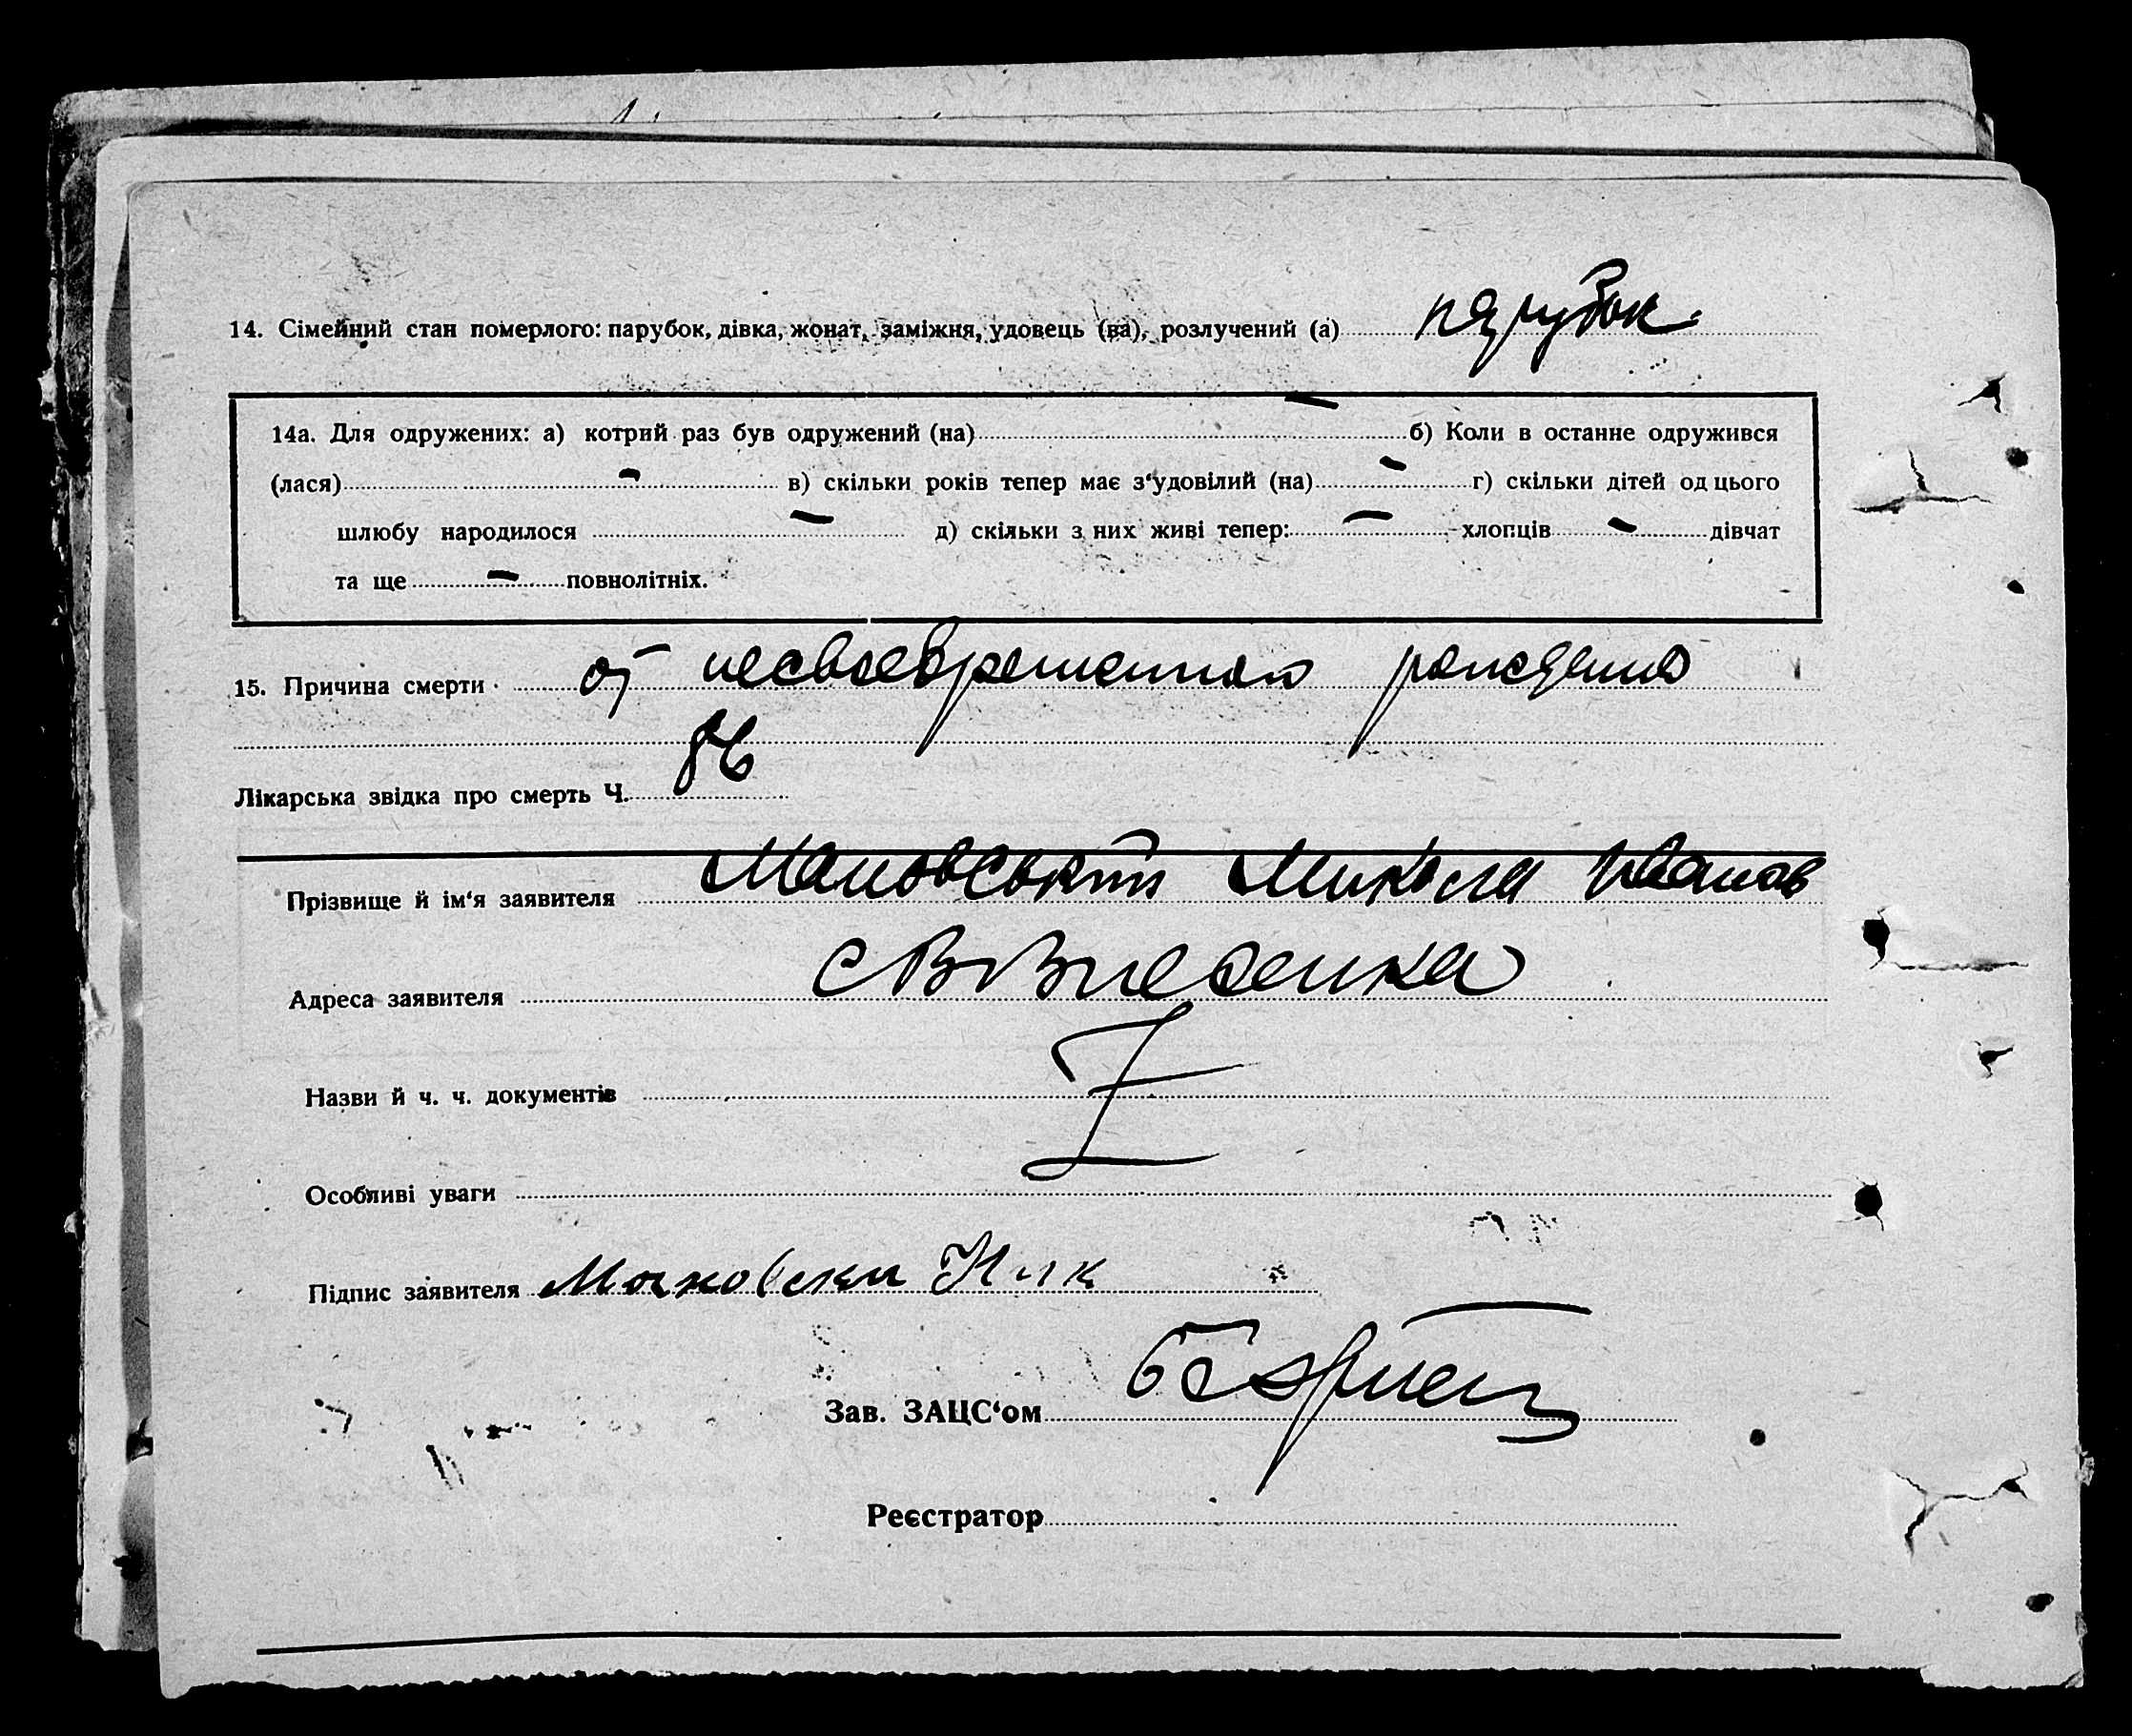 14. Сімейний стан померлого: парубок, дівка, жонат, заміжня, удовець (ва), розлучений (а) парубок
14а. Для одружених: а) котрий раз був одружений (на) — б) Коли в останнє одружився
(лася) — в) скільки років тепер має з'удовілий (на) — г) скільки дітей од цього
шлюбу народилося — д) скільки з них живі тепер: — хлопців — дівчат
та ще — повнолітніх.
15. Причина смерти от несвоевременного рождения
Лікарська звідка про смерть Ч. 86
Прізвище й ім'я заявителя Микола Иванов
Адреса заявителя с Вознесенка
Назви й ч. ч. документів
Особливі уваги
Підпис заявителя Маковски Ник
Зав. ЗАЦС'ом
Реєстратор